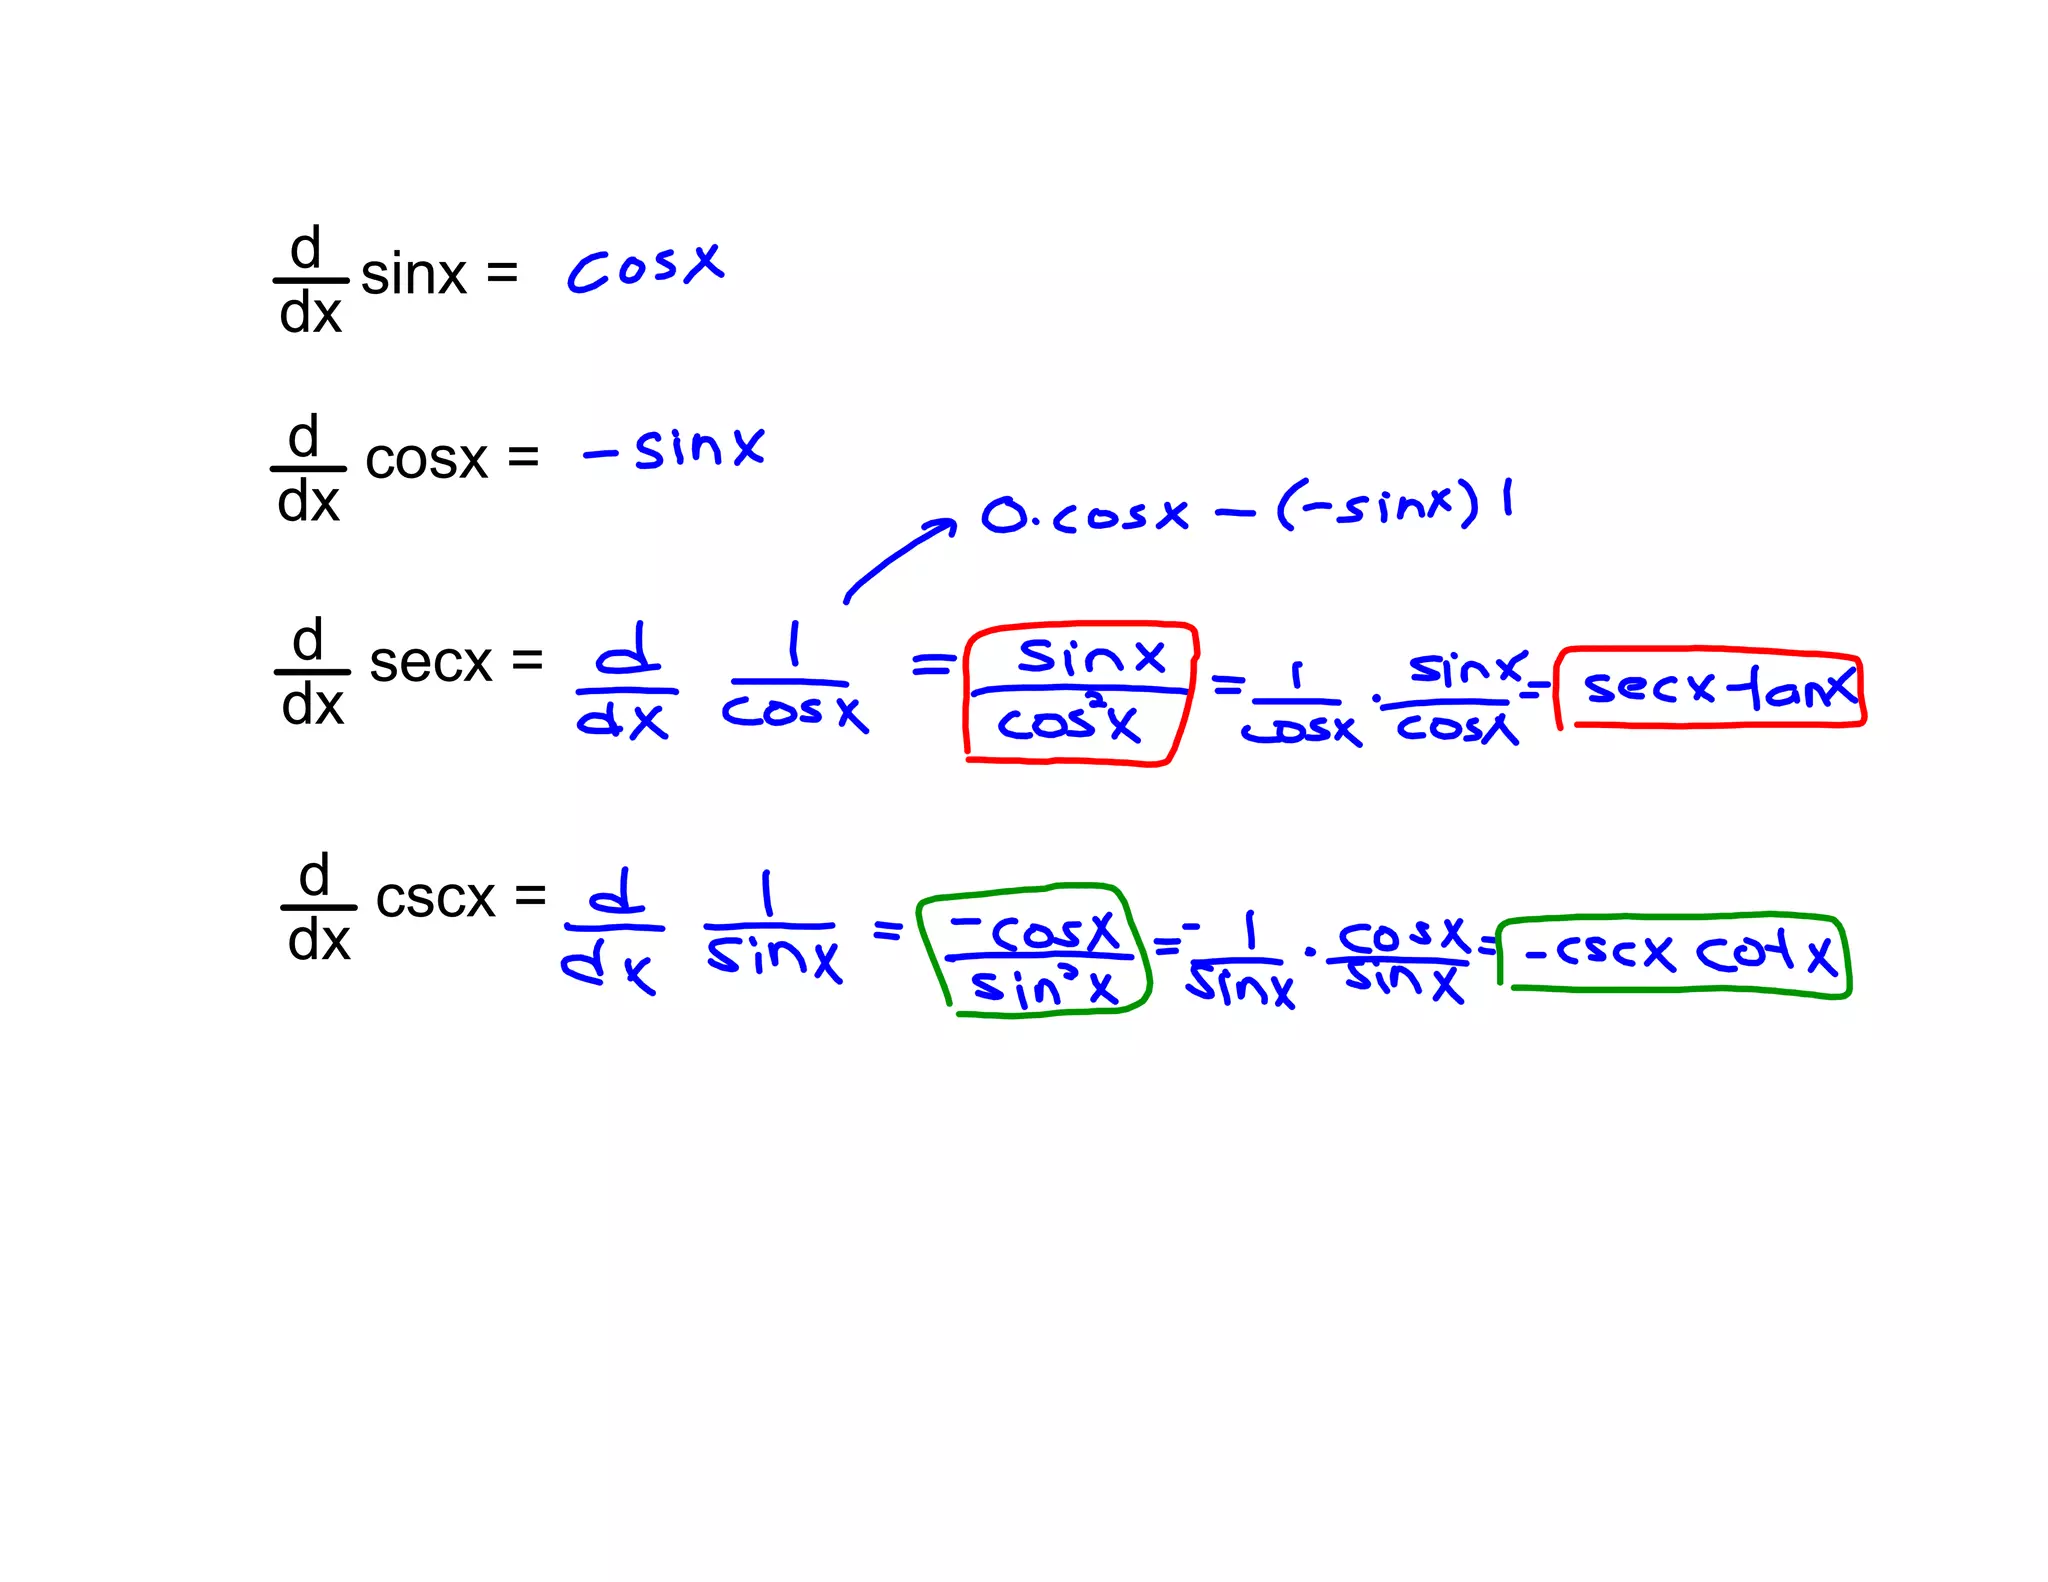 d/dx sinx = cosx
d/dx cosx = -sinx
0·cosx - (-sinx) 1
d/dx secx = d/dx 1/cosx = sinx/cos²x = 1/cosx · sinx/cosx = secx tanx
d/dx cscx = d/dx 1/sinx = -cosx/sin²x = - 1/sinx · cosx/sinx = -cscx cotx